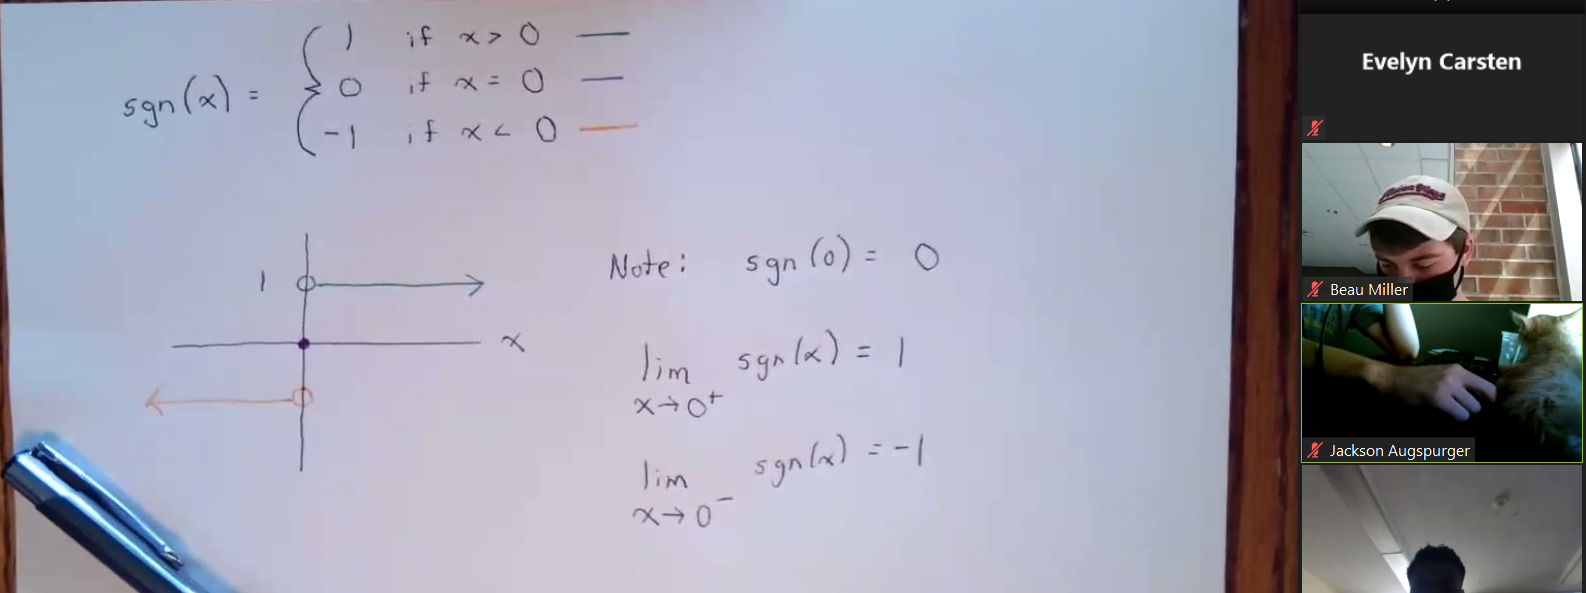 sgn(x) = { 1 if x > 0
0 if x = 0
-1 if x < 0
1
x
Note: sgn(0) = 0
lim x→0⁺ sgn(x) = 1
lim x→0⁻ sgn(x) = -1
Evelyn Carsten
Beau Miller
Jackson Augspurger